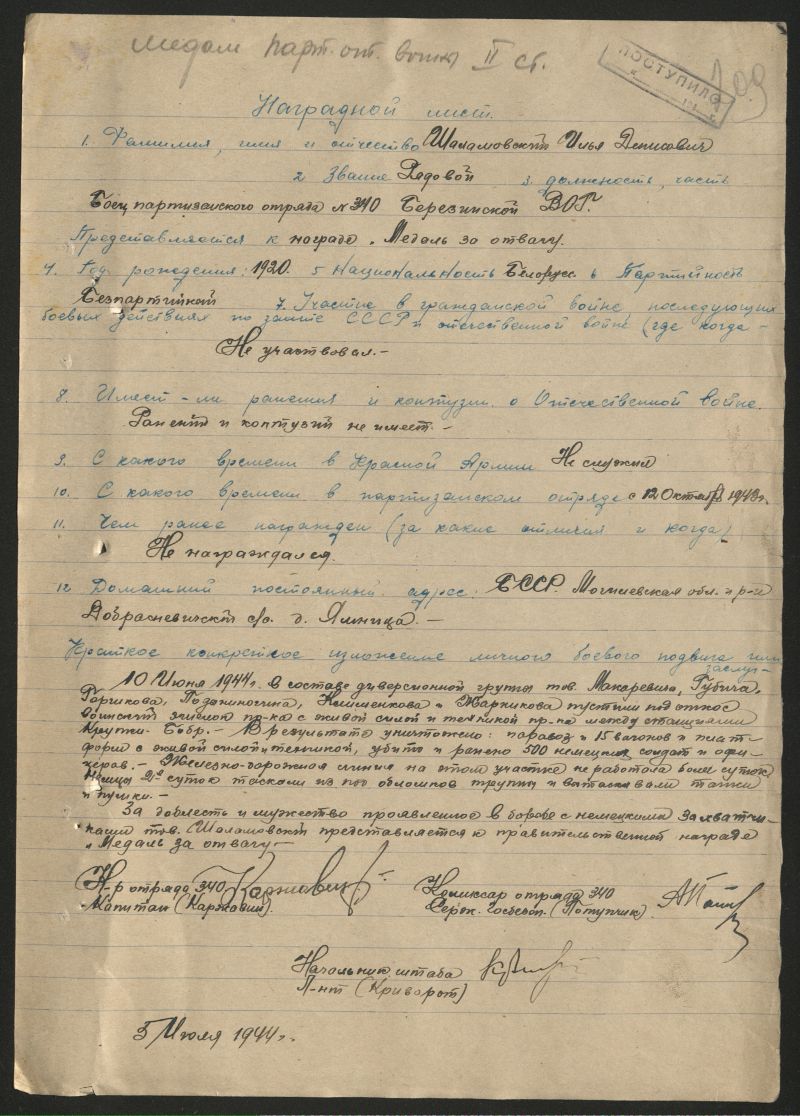 Медаль парт. от. войны II ст.
ПОСТУПИЛО
109
Наградной лист.
1. Фамилия, имя и отчество Шаламовский Илья Денисович
2. Звание Рядовой 3. должность, часть
Боец партизанского отряда №340 Березинской ВОГ.
Представляется к награде „Медаль за отвагу.
4. Год рождения: 1920. 5 Национальность Белорусс. 6 Партийность
Безпартийный 7. Участие в гражданской войне, последующих
боевых действиях по защите СССР и отечественной войне (где когда –
Не участвовал. –
8. Имеет-ли ранения и контузии в Отечественной войне.
Ранений и контузий не имеет. –
9. С какого времени в Красной Армии Не служил
10. С какого времени в партизанском отряде с 12 Октября 1943 г.
11. Чем ранее награжден (за какие отличия и когда)
Не награждался.
12 Домашний постоянный адрес: БССР. Могилевская обл. р-н
с/с. д. Ямница. –
Краткое конкретное изложение личного боевого подвига или
заслуг –
10 Июня 1944 г. в составе диверсионной группы тов. Макаревича, Губича,
Клименкова и Жарикова пустили под откос
воинский эшелон пр-ка с живой силой и техникой пр-ка между станциями
Крупки – Бобр. – В результате уничтожено: паровоз и 15 вагонов и плат-
форм с живой силой и техникой, убито и ранено 500 немецких солдат и офи-
церов. – Железно-дорожная линия на этом участке не работала более суток
Немцы 2е суток таскали из под обломков трупы и вытаскивали танки
и пушки. –
За доблесть и мужество проявленное в борьбе с немецкими захватчи-
ками тов. Шаламовский представляется к правительственной награде
„Медаль за отвагу –
К-р отряда 340
Капитан (Каржавин).
Комиссар отряда 340
Серж. Госбезоп. (Потупчик)
Начальник штаба
Л-нт (Криворот)
5 Июля 1944 г.